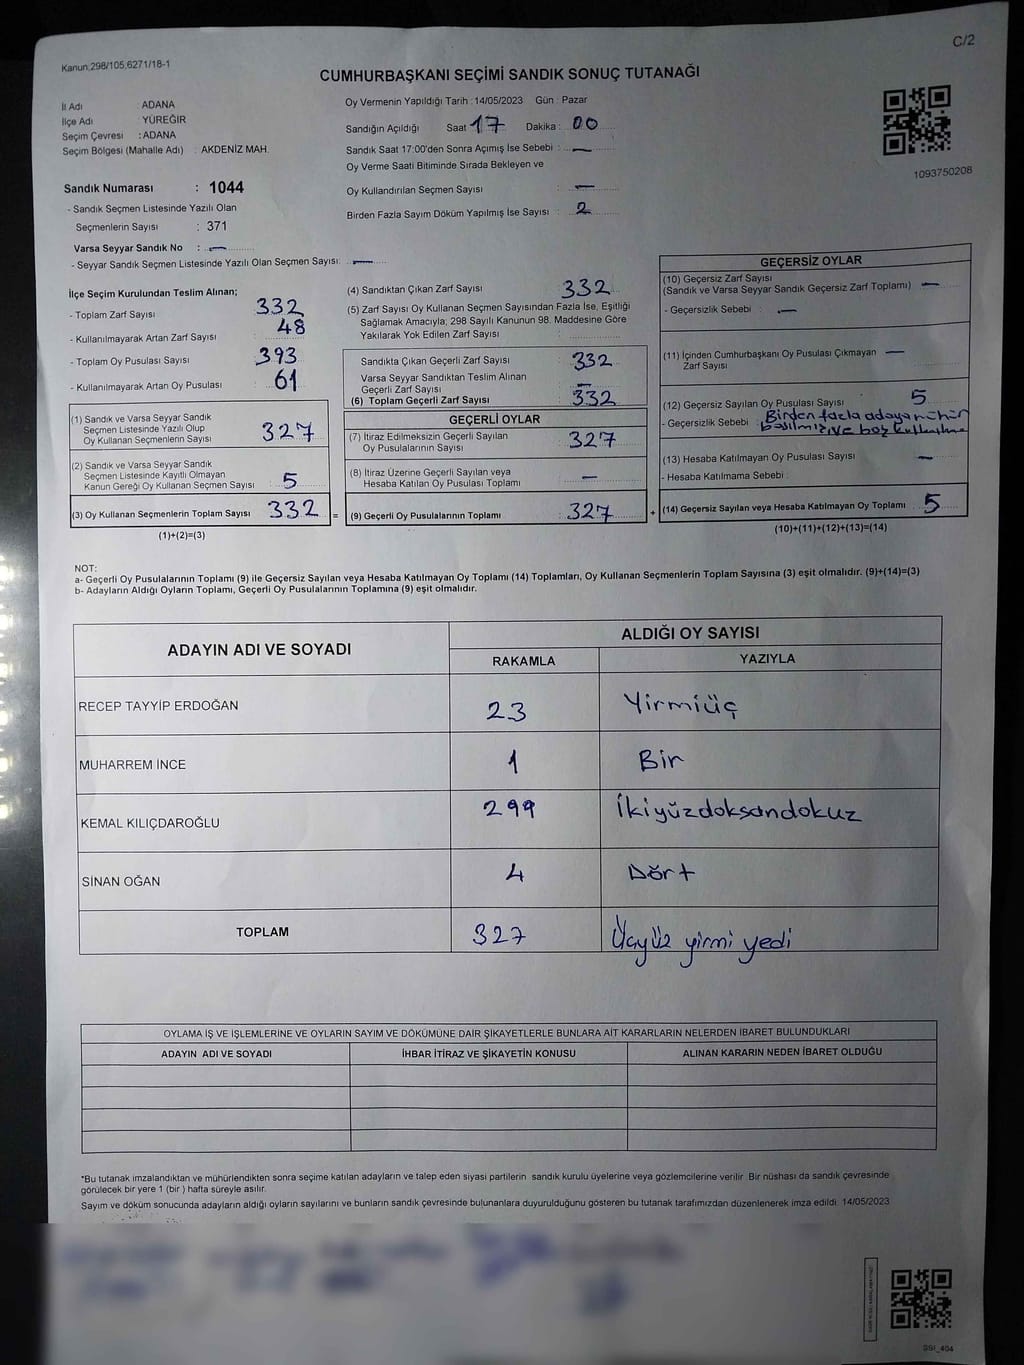 C/2
Kanun:298/105,6271/18-1
CUMHURBAŞKANI SEÇİMİ SANDIK SONUÇ TUTANAĞI
İl Adı : ADANA
İlçe Adı : YÜREĞİR
Seçim Çevresi : ADANA
Seçim Bölgesi (Mahalle Adı) : AKDENİZ MAH.
Sandık Numarası : 1044
- Sandık Seçmen Listesinde Yazılı Olan
Seçmenlerin Sayısı : 371
Varsa Seyyar Sandık No : —
- Seyyar Sandık Seçmen Listesinde Yazılı Olan Seçmen Sayısı: —
Oy Vermenin Yapıldığı Tarih : 14/05/2023 Gün : Pazar
Sandığın Açıldığı Saat 17 Dakika : 00
Sandık Saat 17:00'den Sonra Açımış İse Sebebi : —
Oy Verme Saati Bitiminde Sırada Bekleyen ve
Oy Kullandırılan Seçmen Sayısı —
Birden Fazla Sayım Döküm Yapılmış İse Sayısı : 2
1093750208
İlçe Seçim Kurulundan Teslim Alınan;
- Toplam Zarf Sayısı 332
- Kullanılmayarak Artan Zarf Sayısı : 48
- Toplam Oy Pusulası Sayısı 393
- Kullanılmayarak Artan Oy Pusulası : 61
(1) Sandık ve Varsa Seyyar Sandık
Seçmen Listesinde Yazılı Olup
Oy Kullanan Seçmenlerin Sayısı 327
(2) Sandık ve Varsa Seyyar Sandık
Seçmen Listesinde Kayıtlı Olmayan
Kanun Gereği Oy Kullanan Seçmen Sayısı 5
(3) Oy Kullanan Seçmenlerin Toplam Sayısı 332 =
(1)+(2)=(3)
(4) Sandıktan Çıkan Zarf Sayısı 332
(5) Zarf Sayısı Oy Kullanan Seçmen Sayısından Fazla İse, Eşitliği
Sağlamak Amacıyla; 298 Sayılı Kanunun 98. Maddesine Göre
Yakılarak Yok Edilen Zarf Sayısı :
Sandıkta Çıkan Geçerli Zarf Sayısı 332
Varsa Seyyar Sandıktan Teslim Alınan
Geçerli Zarf Sayısı —
(6) Toplam Geçerli Zarf Sayısı 332
GEÇERLİ OYLAR
(7) İtiraz Edilmeksizin Geçerli Sayılan
Oy Pusulalarının Sayısı 327
(8) İtiraz Üzerine Geçerli Sayılan veya
Hesaba Katılan Oy Pusulası Toplamı —
(9) Geçerli Oy Pusulalarının Toplamı 327 +
GEÇERSİZ OYLAR
(10) Geçersiz Zarf Sayısı
(Sandık ve Varsa Seyyar Sandık Geçersiz Zarf Toplamı) —
- Geçersizlik Sebebi : —
(11) İçinden Cumhurbaşkanı Oy Pusulası Çıkmayan —
Zarf Sayısı
(12) Geçersiz Sayılan Oy Pusulası Sayısı 5
- Geçersizlik Sebebi Birden fazla adaya mühür
ve boş
(13) Hesaba Katılmayan Oy Pusulası Sayısı —
- Hesaba Katılmama Sebebi
(14) Geçersiz Sayılan veya Hesaba Katılmayan Oy Toplamı 5
(10)+(11)+(12)+(13)=(14)
NOT:
a- Geçerli Oy Pusulalarının Toplamı (9) ile Geçersiz Sayılan veya Hesaba Katılmayan Oy Toplamı (14) Toplamları, Oy Kullanan Seçmenlerin Toplam Sayısına (3) eşit olmalıdır. (9)+(14)=(3)
b- Adayların Aldığı Oyların Toplamı, Geçerli Oy Pusulalarının Toplamına (9) eşit olmalıdır.
ADAYIN ADI VE SOYADI ALDIĞI OY SAYISI
RAKAMLA YAZIYLA
RECEP TAYYİP ERDOĞAN 23 Yirmiüç
MUHARREM İNCE 1 Bir
KEMAL KILIÇDAROĞLU 299 İkiyüzdoksandokuz
SİNAN OĞAN 4 Dört
TOPLAM 327 Üçyüz yirmi yedi
OYLAMA İŞ VE İŞLEMLERİNE VE OYLARIN SAYIM VE DÖKÜMÜNE DAİR ŞİKAYETLERLE BUNLARA AİT KARARLARIN NELERDEN İBARET BULUNDUKLARI
ADAYIN ADI VE SOYADI İHBAR İTİRAZ VE ŞİKAYETİN KONUSU ALINAN KARARIN NEDEN İBARET OLDUĞU
*Bu tutanak imzalandıktan ve mühürlendikten sonra seçime katılan adayların ve talep eden siyasi partilerin sandık kurulu üyelerine veya gözlemcilerine verilir. Bir nüshası da sandık çevresinde
görülecek bir yere 1 (bir ) hafta süreyle asılır.
Sayım ve döküm sonucunda adayların aldığı oyların sayılarını ve bunların sandık çevresinde bulunanlara duyurulduğunu gösteren bu tutanak tarafımızdan düzenlenerek imza edildi. 14/05/2023
SSI_404